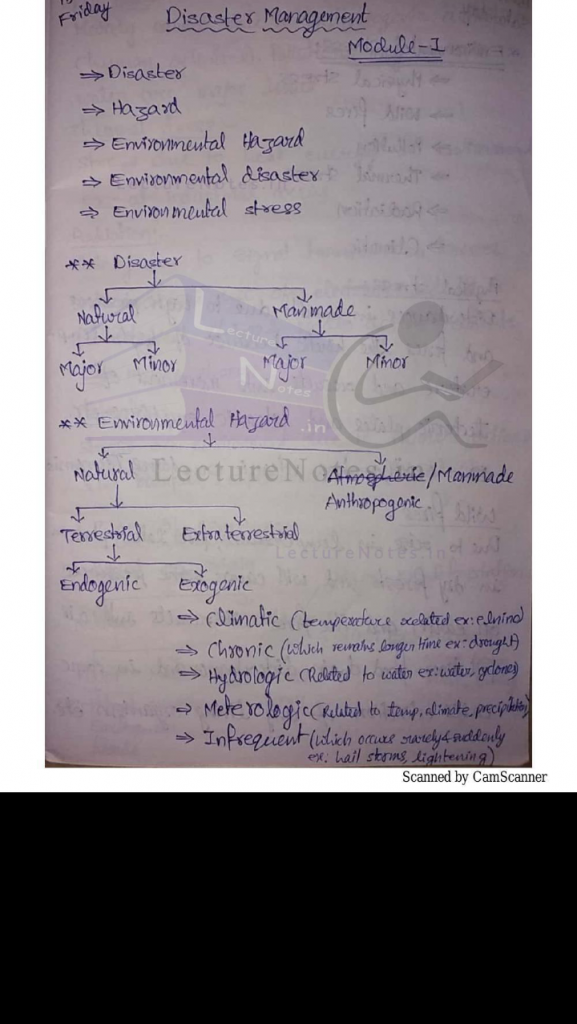 Friday
Disaster Management
Module-I
⇒ Disaster
⇒ Hazard
⇒ Environmental Hazard
⇒ Environmental disaster
⇒ Environmental stress
** Disaster
Natural Manmade
Major Minor Major Minor
** Environmental Hazard
Natural Atmospheric/Manmade
Anthropogenic
Terrestrial Extraterrestrial
Endogenic Exogenic
⇒ Climatic (temperature related ex: elnino)
⇒ Chronic (which remains longer time ex: drought)
⇒ Hydrologic (Related to water ex: water, cyclones)
⇒ Meterologic (Related to temp, climate, precipitation)
⇒ Infrequent (which occurs rarely & suddenly
ex: hail stroms, lightening)
Lecture
Notes
.in
LectureNotes.in
LectureNotes.in
Scanned by CamScanner